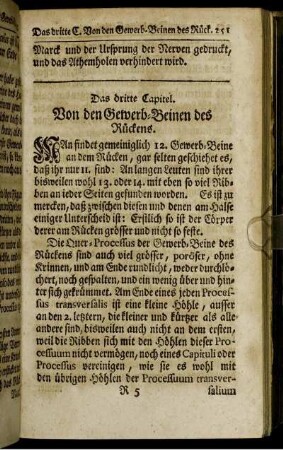 Das dritte C. Von den Gewerb-Beinen des Rück. 251
Marck und der Ursprung der Nerven gedruckt,
und das Athemholen verhindert wird.
Das dritte Capitel.
Von den Gewerb-Beinen des
Rückens.
MAn findet gemeiniglich 12. Gewerb-Beine
an dem Rücken, gar selten geschiehet es,
daß ihr nur 11. sind: An langen Leuten sind ihrer
bisweilen wohl 13. oder 14. mit eben so viel Rib-
ben an jeder Seiten gefunden worden. Es ist zu
mercken, daß zwischen diesen und denen am Halse
einiger Unterscheid ist: Erstlich so ist der Cörper
derer am Rücken grösser und nicht so feste.
Die Quer-Processus der Gewerb-Beine des
Rückens sind auch viel grösser, poröser, ohne
Krinnen, und am Ende rundlicht, weder durchlö-
chert, noch gespalten, und ein wenig über und hin-
ter sich gekrümmet. Am Ende eines jeden Proces-
sus transversalis ist eine kleine Höhle, ausser
an den 2. letztern, die kleiner und kürtzer als alle
andere sind, bisweilen auch nicht an dem ersten,
weil die Ribben sich mit den Höhlen dieser Pro-
cessuum nicht vermögen, noch eines Capituli oder
Processus vereinigen, wie sie es wohl mit
den übrigen Höhlen der Processuum transver-
R 5 salium